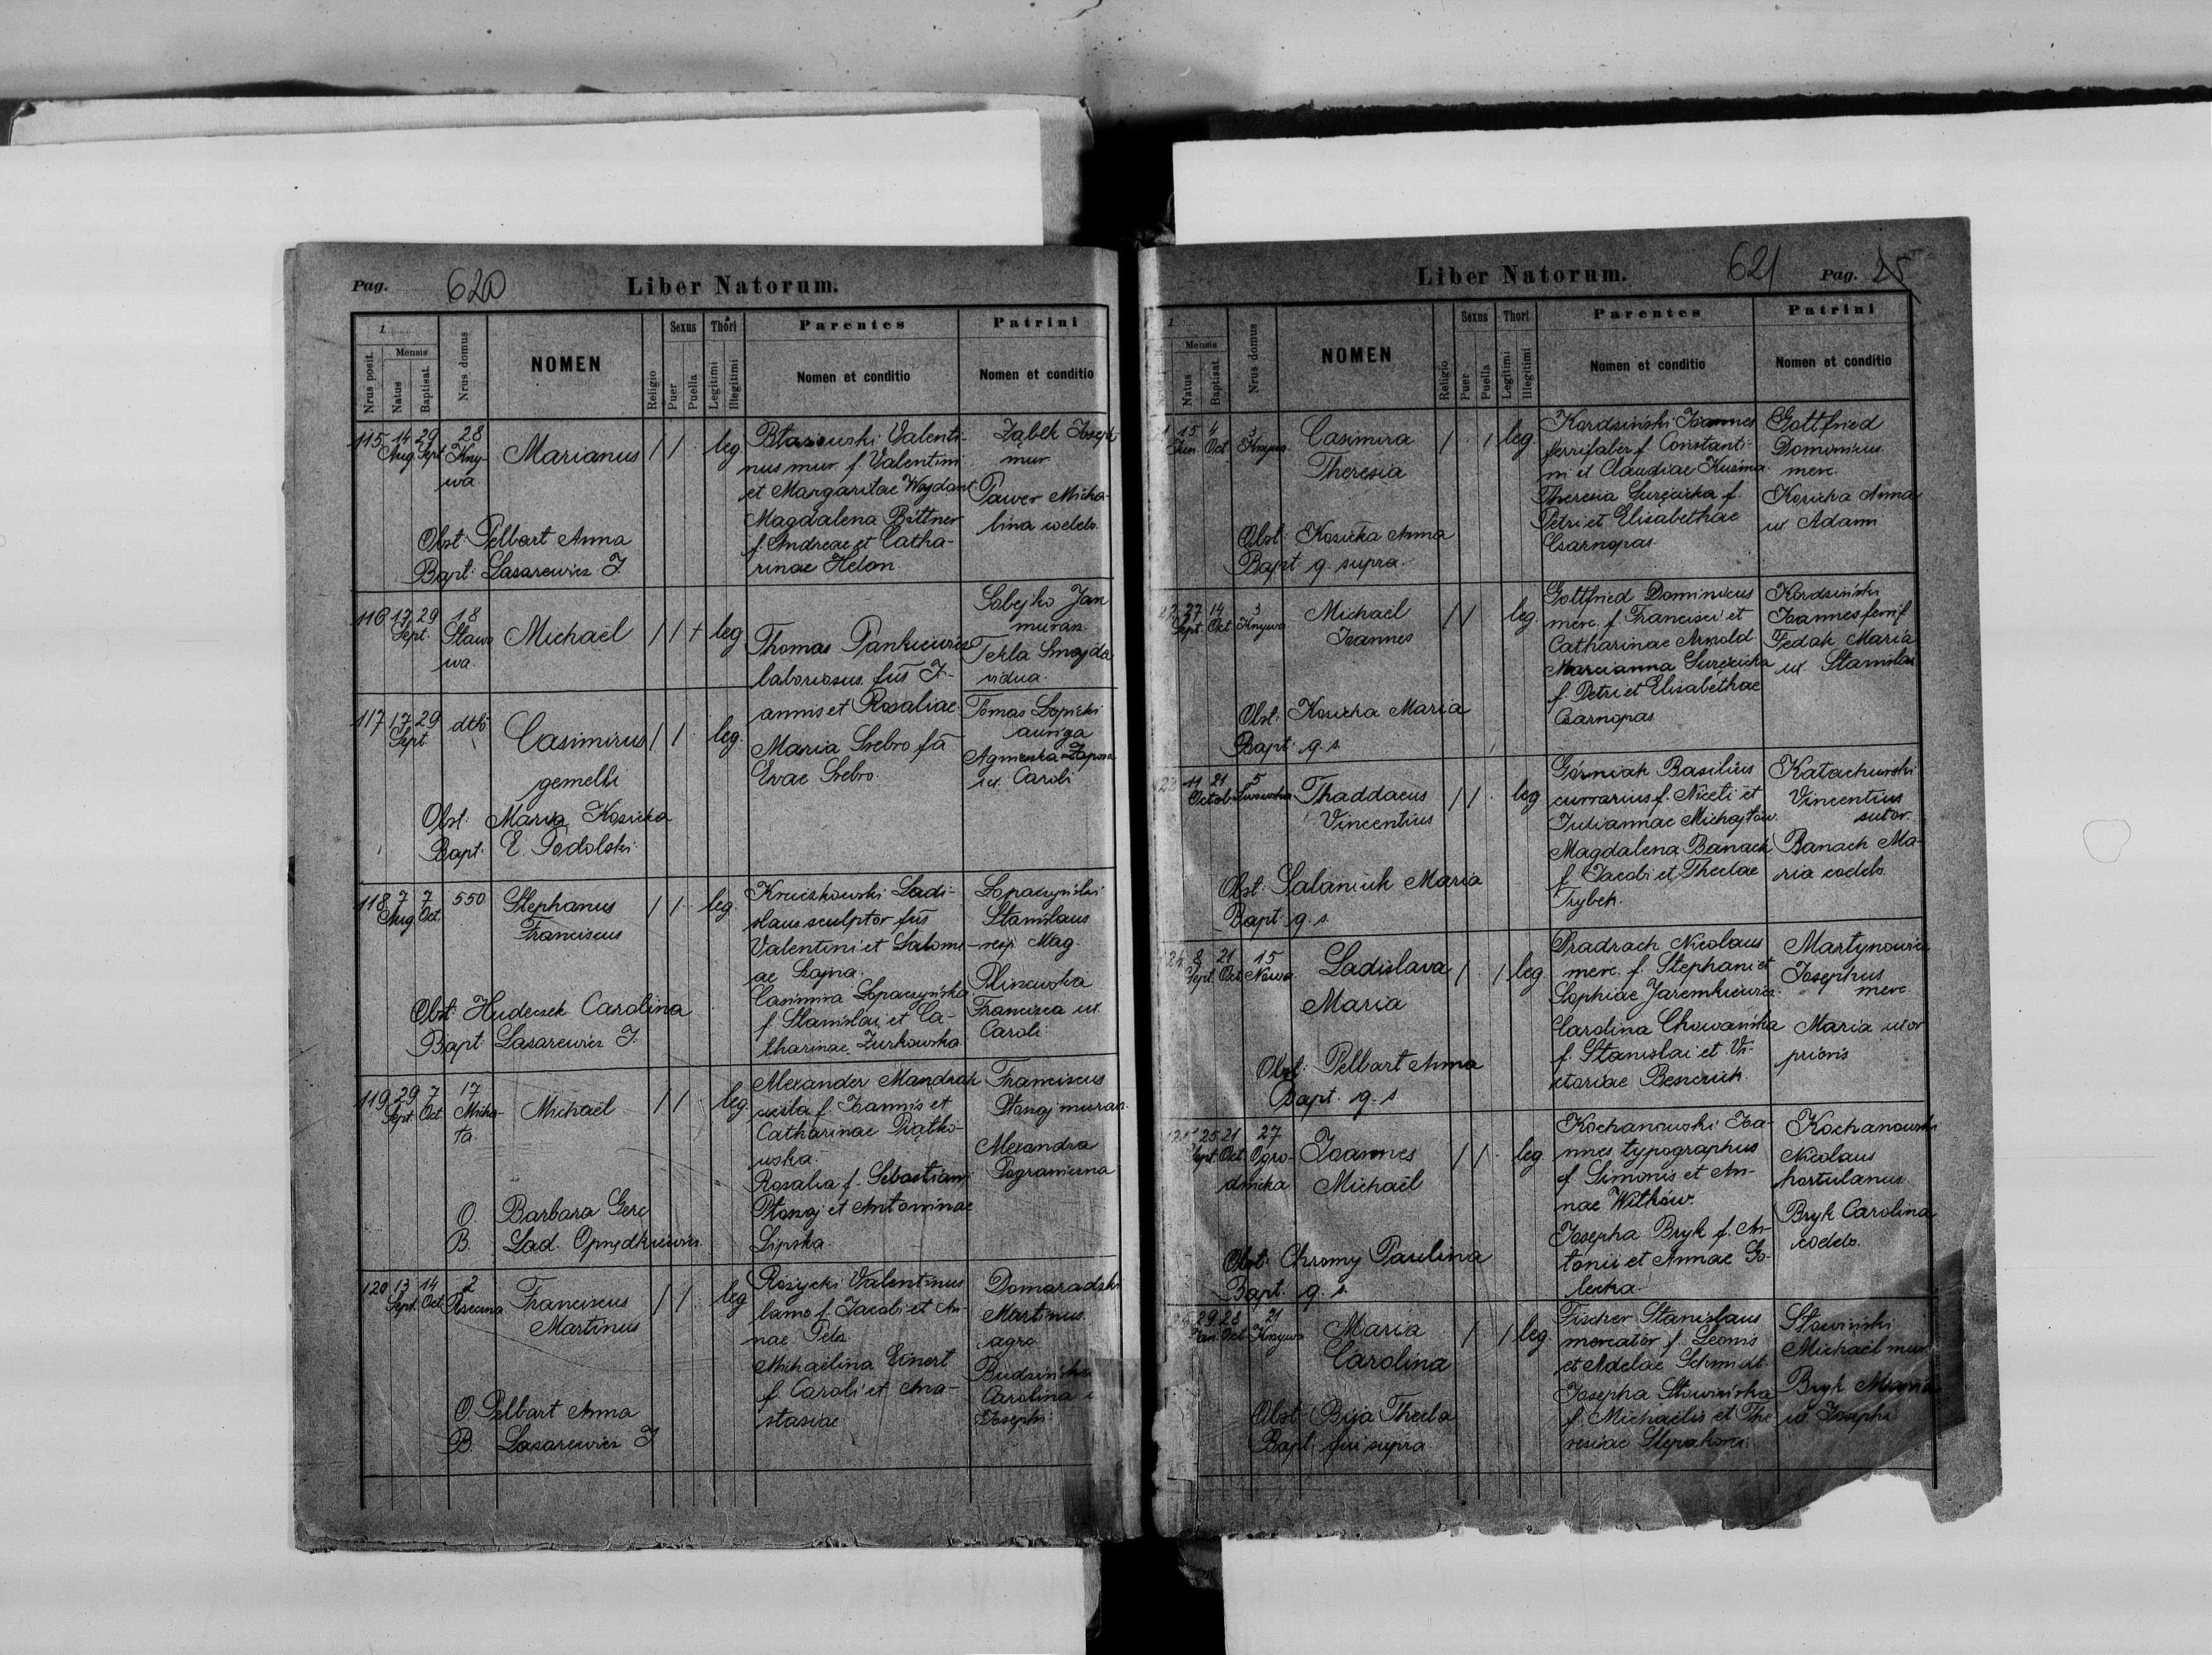 Pag. 620 Liber Natorum.
1.
Nrus posit.
Mensis
Natus
Baptisat.
Nrus domus
NOMEN
Religio
Sexus
Puer
Puella
Thori
Legitimi
Illegitimi
Parentes
Nomen et conditio
Patrini
Nomen et conditio
115 14 29 28
Aug. Sept. Kny-
wa
Marianus / / leg.
Obst: Pelbart Anna
Bapt: Lasarewicz J.
Valenti-
nus mur. f. Valentini
et Margaritae Wajdant
Magdalena Bittner
f. Andreae et Catha-
rinae Helon.
Ząbek Joseph
mur.
Pawer Micha-
lina coeleb.
116 17 29 18
Sept. Stawo
wa.
Michaël / / + leg
Thomas Pankiewicz
laboriosus fus J-
annis et Rosaliae.
Maria Srebro fa
Evae Srebro.
Sobejko Jan
murar.
Tekla Smajda
vidua.
117 17 29 dtto
Sept
Casimirus / / leg.
gemelli
Obst: Maria Kosicka
Bapt: E. Podolski
Tomas Łopicki
auriga
Agnieszka
ux. Caroli
118 7 7 550
Aug Oct.
Stephanus / / leg.
Franciscus
Obst: Hudeczek Carolina
Bapt: Lasarewicz J.
Kruczkowski Ladi-
slaus sculptor fus
Valentini et Salome-
ae Łojna.
Casimira Łopaczyńska
f. Stanislai et Ca-
tharinae Żurkowska
Łopaczyński
Stanislaus
resp. Mag.
Plinewska
Francisca ux.
Caroli
119 29 7 17
Sept. Oct. Micha-
ta.
Michaël / / leg
O. Barbara Gerc
B. Lad. Oprydkiewicz.
Alexander Mandrak
f. Joannis et
Catharinae Piątko-
wska.
Rosalia f. Sebastiani
Płoszaj et Antoninae
Lipska.
Franciscus
Płoszaj murar.
Alexandra
Pograniczna
120 13 14 2
Sept. Oct.
Franciscus / / leg
Martinus
O. Pelbart Anna
B. Lasarewicz J
Rożycki Valentinus
lamo f. Jacobi et An-
nae Pelz
Michaëlina Einert
f. Caroli et Ana-
stasiae
Domaradzki
Martinus
agric.
Budzińska
Carolina
Josephi
Liber Natorum. 621 Pag. 25
1
Mensis
Natus
Baptisat.
Nrus domus
NOMEN
Religio
Sexus
Puer
Puella
Thori
Legitimi
Illegitimi
Parentes
Nomen et conditio
Patrini
Nomen et conditio
15 4 3
Jun. Oct. Knywa
Casimira / / leg
Theresia
Obst: Kosicka Anna
Bapt q. supra.
Kordziński Joannes
ferrifaber f. Constanti-
ni et Claudiae Kuzma
Theresia f.
Petri et Elisabethae
Czarnopas.
Gottfried
Dominicus
merc.
Kosicka Anna
ux Adami
27 14 3
Sept. Oct. Knywa
Michaël / / leg.
Joannes
Obst: Kosicka Maria
Bapt. q. s.
Gottfried Dominicus
merc. f. Francisci et
Catharinae Arnold.
Marcianna
f. Petri et Elisabethae
Czarnopas
Kordziński
Joannes ferrif.
Fedak Maria
ux. Stanislai
11 21 5
Octob.
Thaddaeus / / leg
Vincentius
Obst: Salaniuk Maria
Bapt: q. s.
Górniak Basilius
currarius f. Niceti et
Juliannae Michajłow.
Magdalena Banach
f. Jacobi et Theclae
Trybek.
Katachurski
Vincentius
sutor.
Banach Ma-
ria coeleb.
8 21 15
Sept. Oct. Nowa
Ladislava / / leg
Maria
Obst: Pelbart Anna
Bapt. q. s.
Pradrach Nicolaus
merc. f. Stephani et
Sophiae Jaremkiewicz.
Carolina Chowańska
f. Stanislai et Vi-
ctoriae
Martynowicz
Josephus
merc.
Maria uxor
prioris
125 25 21 27
Sept. Oct. Ogro-
dnicka
Joannes / / leg
Michaël
Obst: Chromy Paulina
Bapt. q. s.
Kochanowski Joa-
nnes typographus
f. Simonis et An-
nae Witków.
Josepha Bryk f. An-
tonii et Annae Go-
lecka
Kochanowski
Nicolaus
hortulanus
Bryk Carolina
coeleb.
29 28 21
Jan. Oct Knywa
Maria / / leg
Carolina
Obst: Bija Thecla
Bapt: qui supra.
Fischer Stanislaus
mercator f. Leonis
et Adelae Schmidt
Josepha Słowińska
f. Michaëlis et The
resiae
Słowiński
Michaël mur
Bryk Maria
ux. Josephi